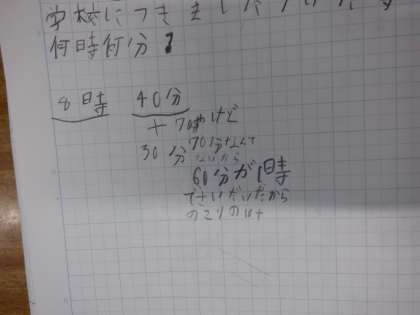 学校につきました
何時何分?
8時 40分
+70分けど
30分 70分なんて
ないから
60分が1時
でさいだいだから
のこりの10